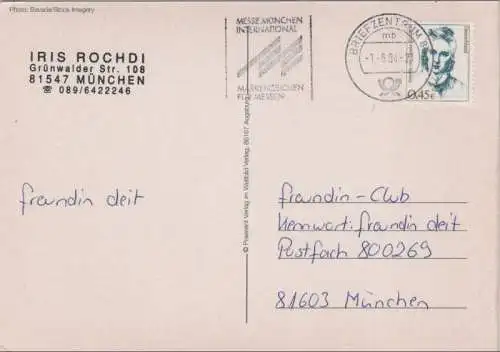 Photo: Bavaria/Stock Imagery
IRIS ROCHDI
Grünwalder Str. 108
81547 MÜNCHEN
☏ 089/6422246
MESSE MÜNCHEN
INTERNATIONAL
MARKENZEICHEN
FÜR MESSEN
BRIEFZENTRUM 8
mb
-1.-6.04-
Deutschland
0,45€
© Popevent Verlag im Weltbild Verlag, 86167 Augsburg
freundin deit
freundin-Club
Kennwort: freundin deit
Postfach 800269
81603 München